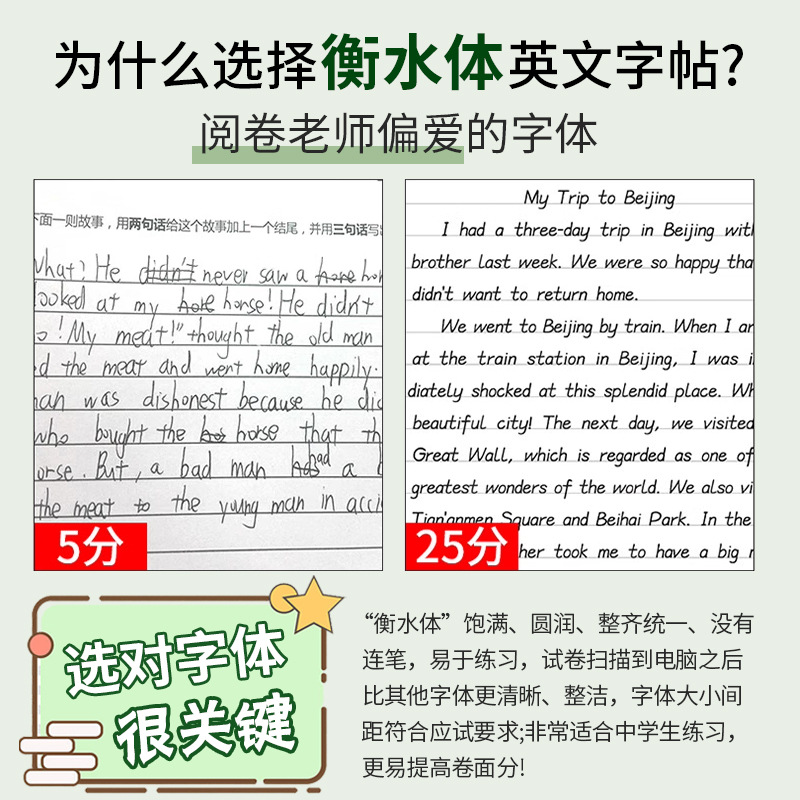 为什么选择衡水体英文字帖?
阅卷老师偏爱的字体
下面一则故事，用两句话给这个故事加上一个结尾，并用三句话写出
What? He didn't never saw a hore hor
looked at my hore horse! He didn't
o! My meat!" thought the old man
d the meat and went home happily.
man was dishonest because he did
who bought the hos horse that th
orse. But, a bad man had a
the meat to the young man in acci
5分
My Trip to Beijing
I had a three-day trip in Beijing with
brother last week. We were so happy tha
didn't want to return home.
We went to Beijing by train. When I ar
at the train station in Beijing, I was i
diately shocked at this splendid place. Wh
beautiful city! The next day, we visited
Great Wall, which is regarded as one of
greatest wonders of the world. We also vi
Tian'anmen Square and Beihai Park. In the
her took me to have a big
25分
选对字体
很关键
“衡水体”饱满、圆润、整齐统一、没有
连笔，易于练习，试卷扫描到电脑之后
比其他字体更清晰、整洁，字体大小间
距符合应试要求;非常适合中学生练习，
更易提高卷面分!